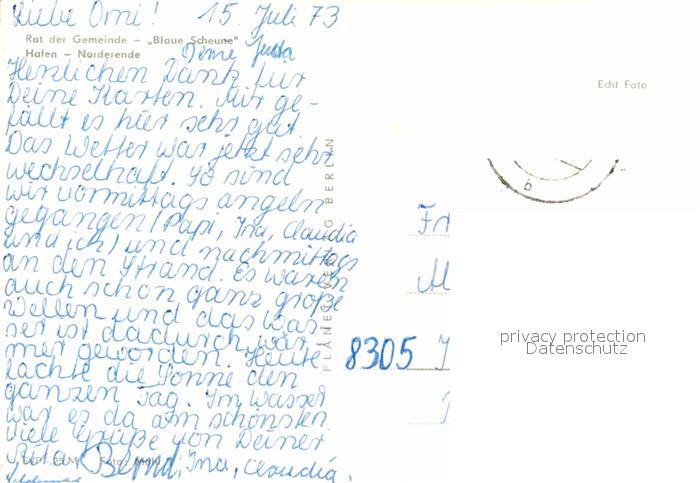 Liebe Omi! 15. Juli 73
Rat der Gemeinde – „Blaue Scheune"
Hafen – Norderende
Deine Jutta
Herzlichen Dank für
Deine Karten. Mir ge-
fällt es hier sehr gut.
Das Wetter war jetzt sehr
wechselhaft. So sind
wir vormittags angeln
gegangen (Papi, Ina, Claudia
und ich) und nachmittags
an den Strand. Es waren
auch schon ganz große
Wellen und das Was-
ser ist dadurch wär-
mer geworden. Heute
lachte die Sonne den
ganzen Tag. Im Wasser
war es da am schönsten.
Viele Grüße von Deiner
Bernd, Ina, Claudia.
PLANET-VERLAG BERLIN
Echt Foto
b
8305
privacy protection
Datenschutz